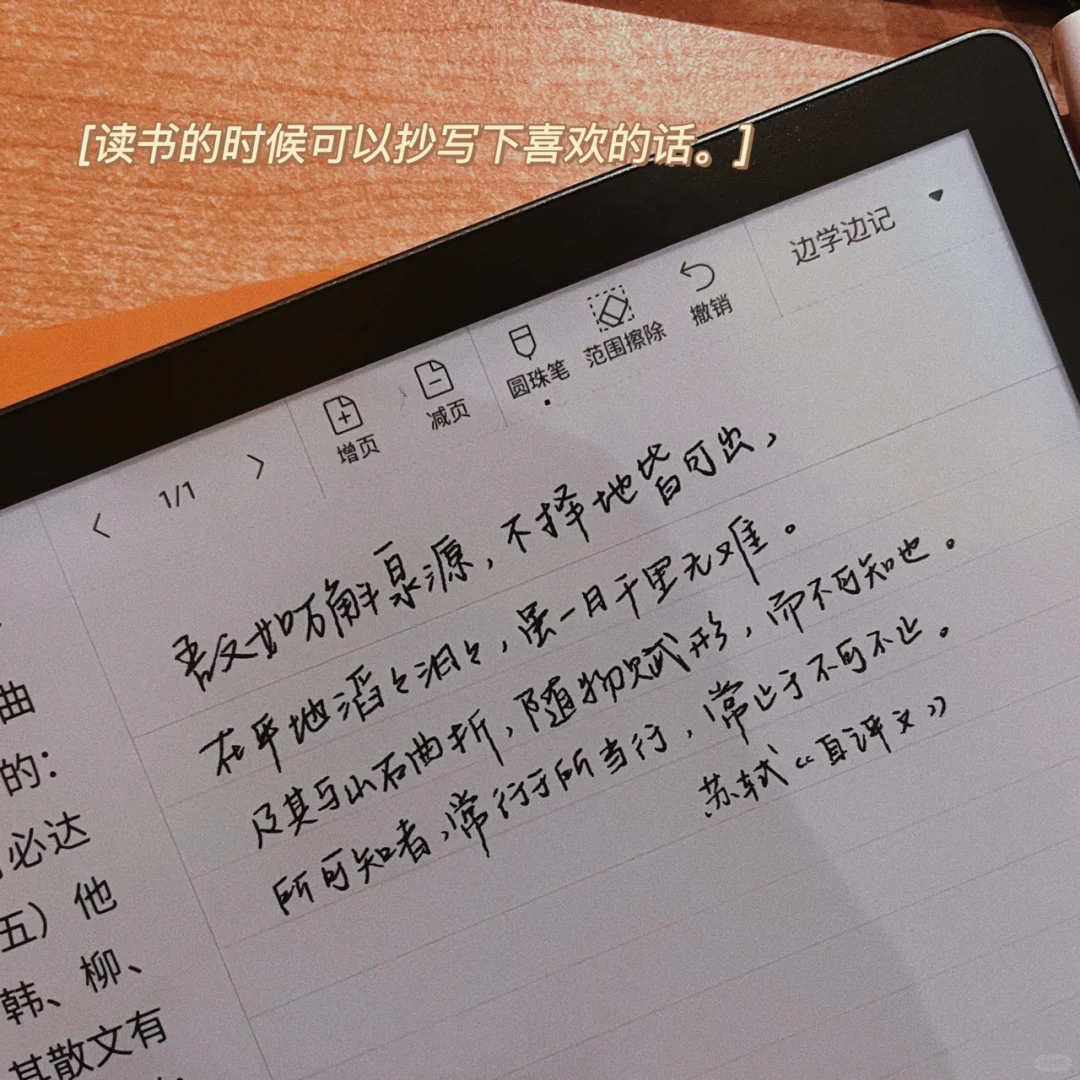 [读书的时候可以抄写下喜欢的话。]
边学边记
撤销
范围擦除
圆珠笔
减页
增页
1/1
吾文如万斛泉源，不择地皆可出，
在平地滔々汩々，虽一日千里无难。
及其与山石曲折，随物赋形，而不可知也。
所可知者，常行于所当行，常止于不可不止。
苏轼《自评文》
曲
的：
必达
五）他
韩、柳、
其散文有